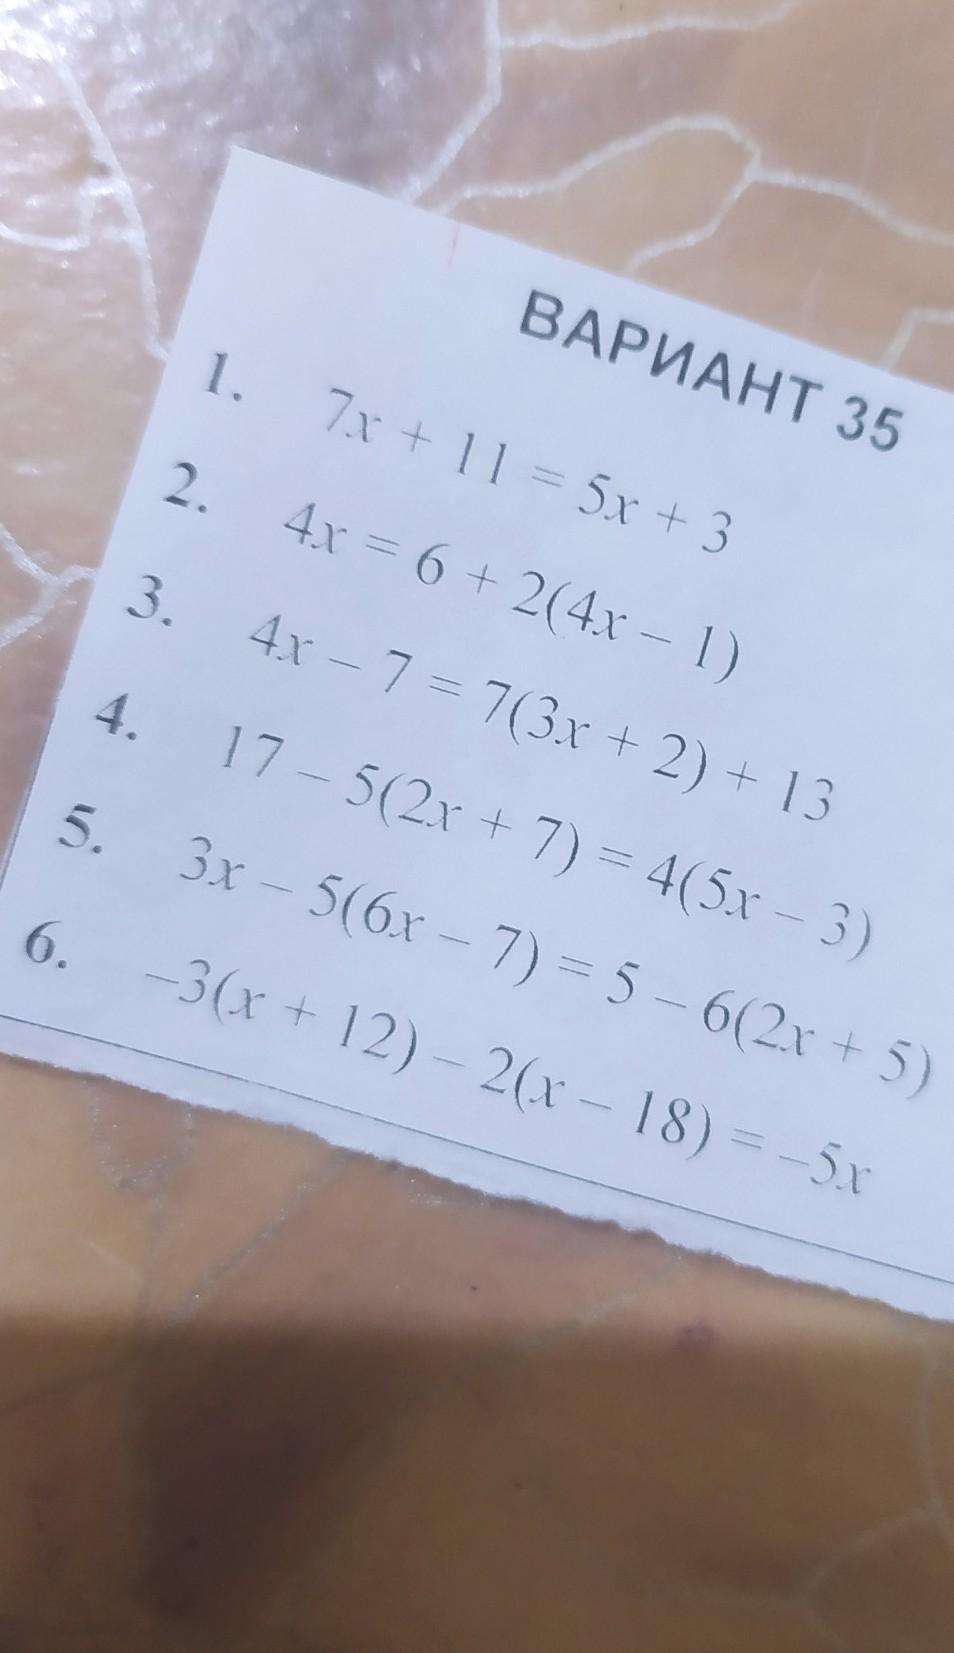 ВАРИАНТ 35
1. 7x + 11 = 5x + 3
2. 4x = 6 + 2(4x – 1)
3. 4x – 7 = 7(3x + 2) + 13
4. 17 – 5(2x + 7) = 4(5x – 3)
5. 3x – 5(6x – 7) = 5 – 6(2x + 5)
6. –3(x + 12) – 2(x – 18) = –5x